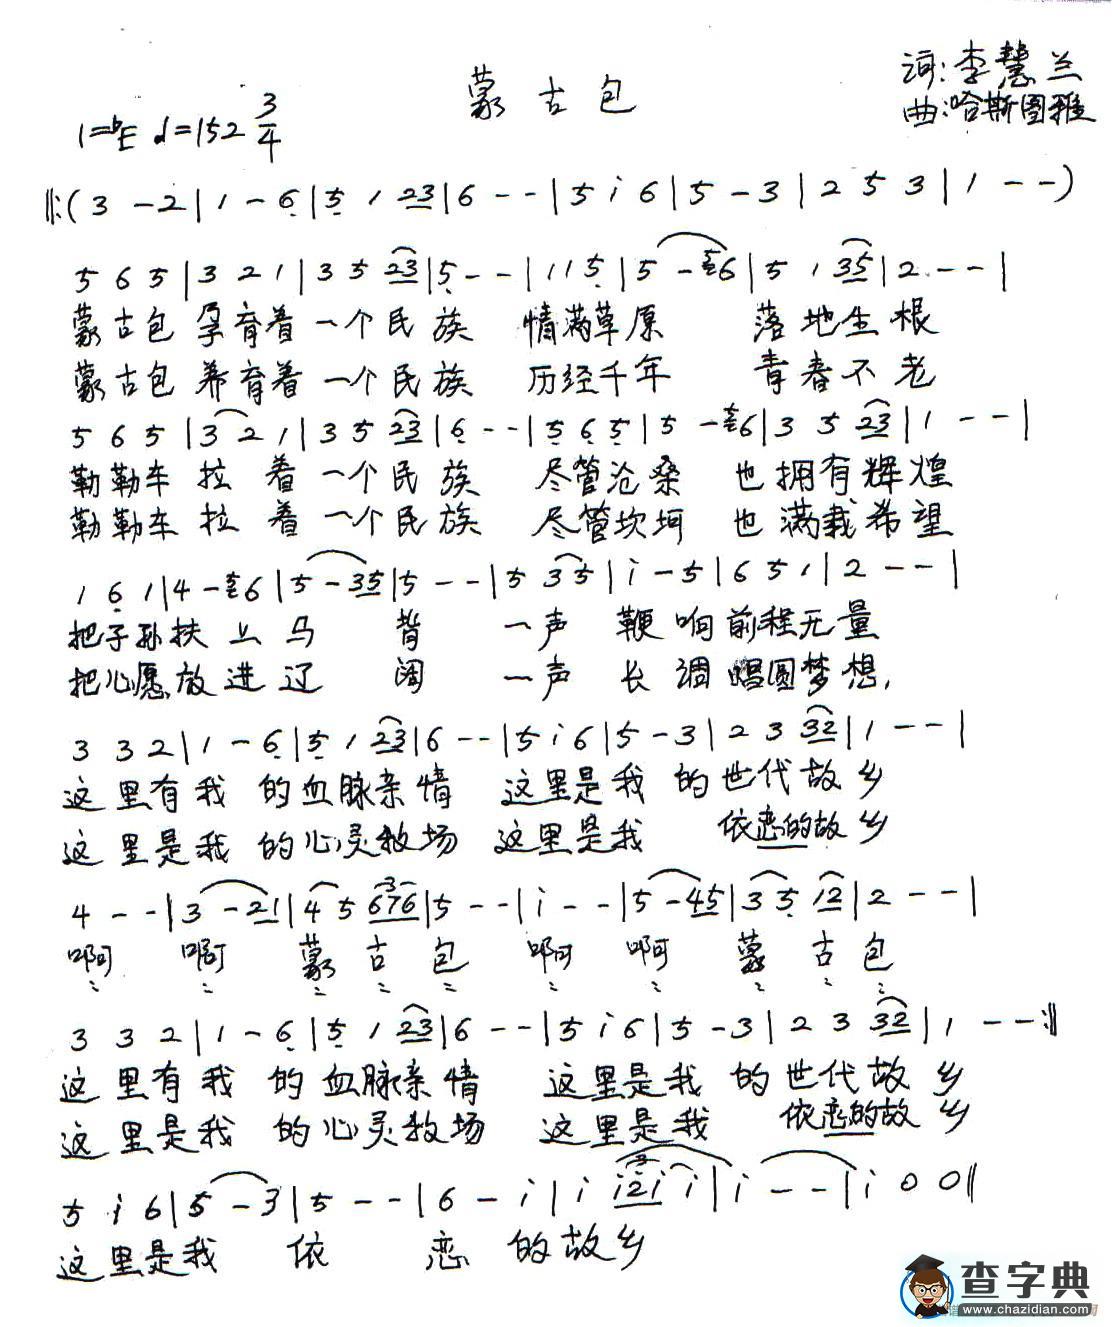 蒙古包
词:李慧兰
曲:哈斯图雅
1=bE d=152 3/4
‖:(3 - 2 | 1 - 6 | 5 1 23 | 6 - - | 5 i 6 | 5 - 3 | 2 5 3 | 1 - -)
5 6 5 | 3 2 1 | 3 5 23 | 5 - - | 1 1 5 | 5 - 6 | 5 1 35 | 2 - - |
蒙古包 孕育着一个民族 情满草原 落地生根
蒙古包 养育着一个民族 历经千年 青春不老
5 6 5 | 3 2 1 | 3 5 23 | 6 - - | 5 6 5 | 5 - 6 | 3 5 23 | 1 - - |
勒勒车 拉着一个民族 尽管沧桑 也拥有辉煌
勒勒车 拉着一个民族 尽管坎坷 也满载希望
1 6 1 | 4 - 6 | 5 - 35 | 5 - - | 5 3 5 | i - 5 | 6 5 1 | 2 - - |
把子孙扶上马背 一声鞭响前程无量
把心愿放进辽阔 一声长调唱圆梦想,
3 3 2 | 1 - 6 | 5 1 23 | 6 - - | 5 i 6 | 5 - 3 | 2 3 32 | 1 - - |
这里有我的血脉亲情 这里是我的世代故乡
这里是我的心灵牧场 这里是我 依恋的故乡
4 - - | 3 - 21 | 4 5 676 | 5 - - | i - - | 5 - 45 | 3 5 12 | 2 - - |
啊 啊 蒙古包 啊 啊 蒙古包
3 3 2 | 1 - 6 | 5 1 23 | 6 - - | 5 i 6 | 5 - 3 | 2 3 32 | 1 - - :‖
这里有我的血脉亲情 这里是我的世代故乡
这里是我的心灵牧场 这里是我 依恋的故乡
5 i 6 | 5 - 3 | 5 - - | 6 - i | i i2i i | i - - | i 0 0 ‖
这里是我 依恋的故乡
查字典
www.chazidian.com